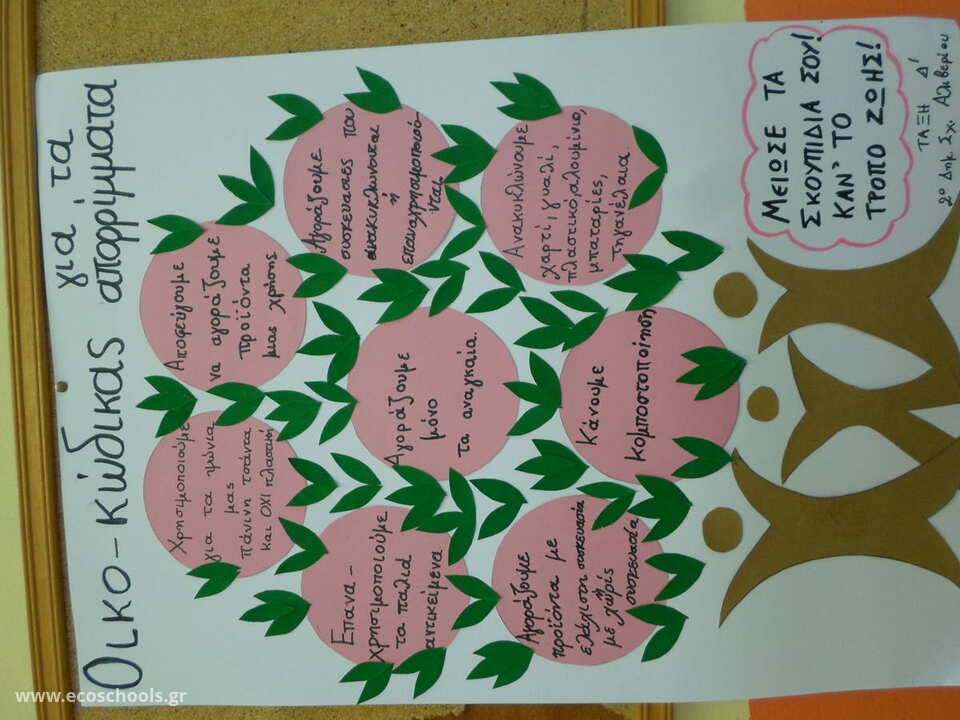 Οικο-κώδικας για τα
απορρίμματα
Χρησιμοποιούμε
για τα ψώνια
μας
πάνινη τσάντα
και ΟΧΙ πλαστική
Αποφεύγουμε
να αγοράζουμε
προϊόντα
μιας χρήσης
Επανα-
χρησιμοποιούμε
τα παλιά
αντικείμενα
Αγοράζουμε
μόνο
τα αναγκαία.
Αγοράζουμε
συσκευασίες που
ανακυκλώνονται
ή
επαναχρησιμοποιού-
νται.
Αγοράζουμε
προϊόντα με
ελάχιστη συσκευασία
ή
με χωρίς
συσκευασία
Κάνουμε
κομποστοποίηση
Ανακυκλώνουμε
χαρτί, γυαλί,
πλαστικό, αλουμίνιο,
μπαταρίες,
τηγανέλαια.
ΜΕΙΩΣΕ ΤΑ
ΣΚΟΥΠΙΔΙΑ ΣΟΥ!
ΚΑΝ' ΤΟ
ΤΡΟΠΟ ΖΩΗΣ!
ΤΑΞΗ Δ'
2ο Δημ. Σχ. Αλιβερίου
www.ecoschools.gr